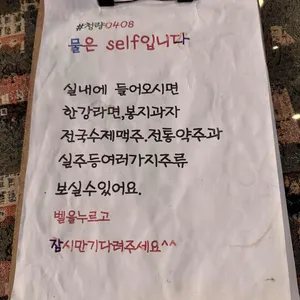 #청량0408
물은 self입니다
실내에 들어오시면
한강라면,봉지과자
전국수제맥주.전통약주과
실주등여러가지주류
보실수있어요.
벨을누르고
잠시만기다려주세요^^